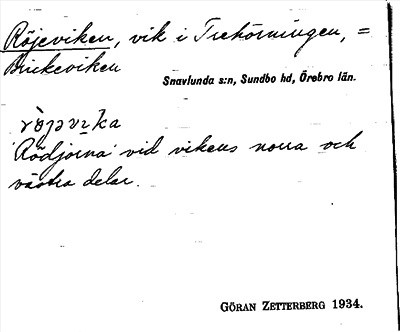 Röjeviken, vik i Trehörningen, =
Brickeviken
Snavlunda s:n, Sundbo hd, Örebro län.
'Rödjorna' vid vikens norra och
västra delar.
GÖRAN ZETTERBERG 1934.